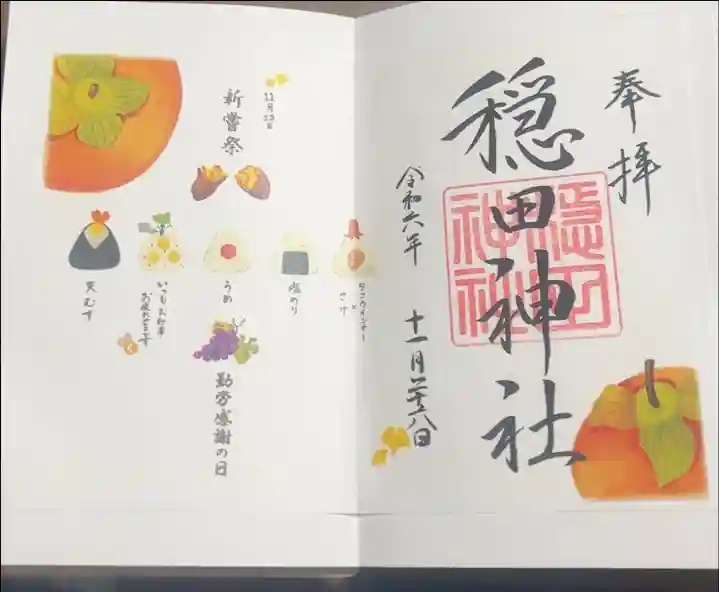 奉拝
穏田神社
穏田
神社
令和六年 十一月二十八日
11月23日
新嘗祭
タコウインナー
と
さけ
塩のり
うめ
いつもお仕事
お疲れさまです
天むす
勤労感謝の日